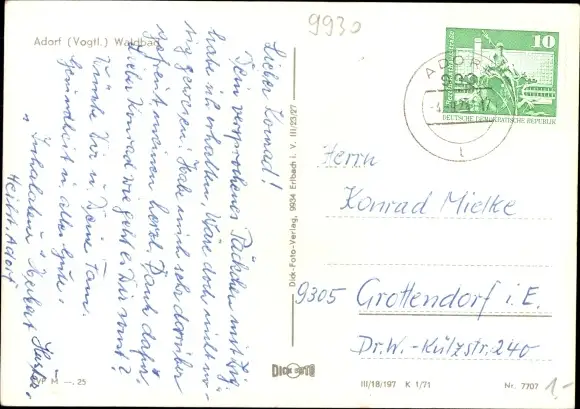 9930
Adorf (Vogtl.) Waldbad
Lieber Konrad!
Dein versprochenes Päckchen mit Zig.
habe ich erhalten, wäre doch nicht nö-
tig gewesen! Habe mich sehr darüber
gefreut, meinen herzl. Dank dafür.
Lieber Konrad wie geht es Dir sonst?
Wünsche Dir u. Deine Fam.
Gesundheit u. alles Gute.
Herbert
Heilbr. Adorf
M —.25
Dick-Foto-Verlag, 9934 Erlbach i. V. III/23/27
DICK FOTO
ADORF
10
DEUTSCHE DEMOKRATISCHE REPUBLIK
Herrn
Konrad Mielke
9305 Grottendorf i. E.
Dr. W.-Külzstr. 240
III/18/197 K 1/71
Nr. 7707
1.-